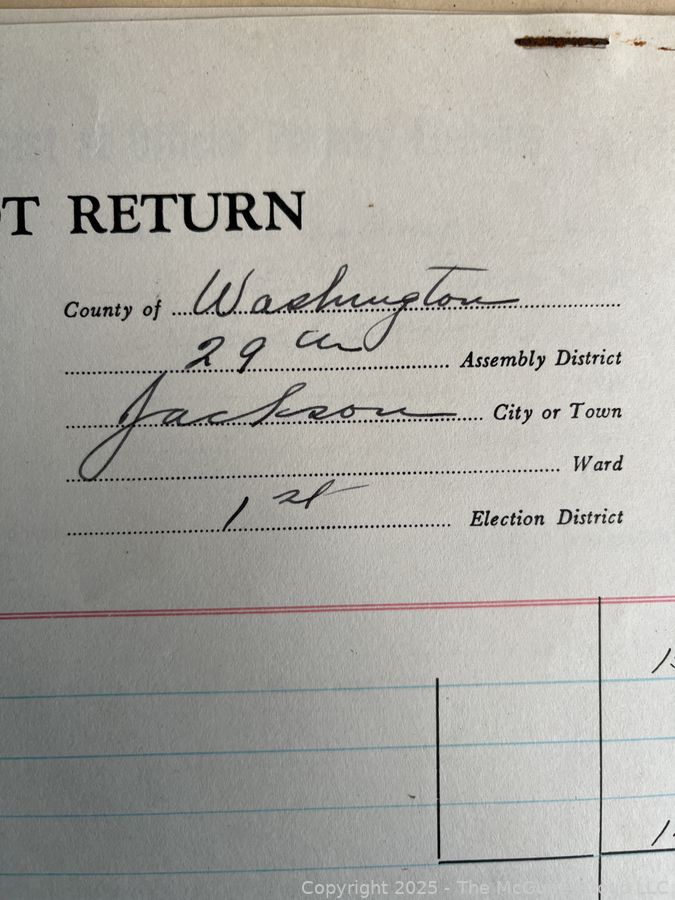 T RETURN
County of Washington
29 th Assembly District
Jackson City or Town
Ward
1st Election District
Copyright 2025 - The McGuire Group LLC